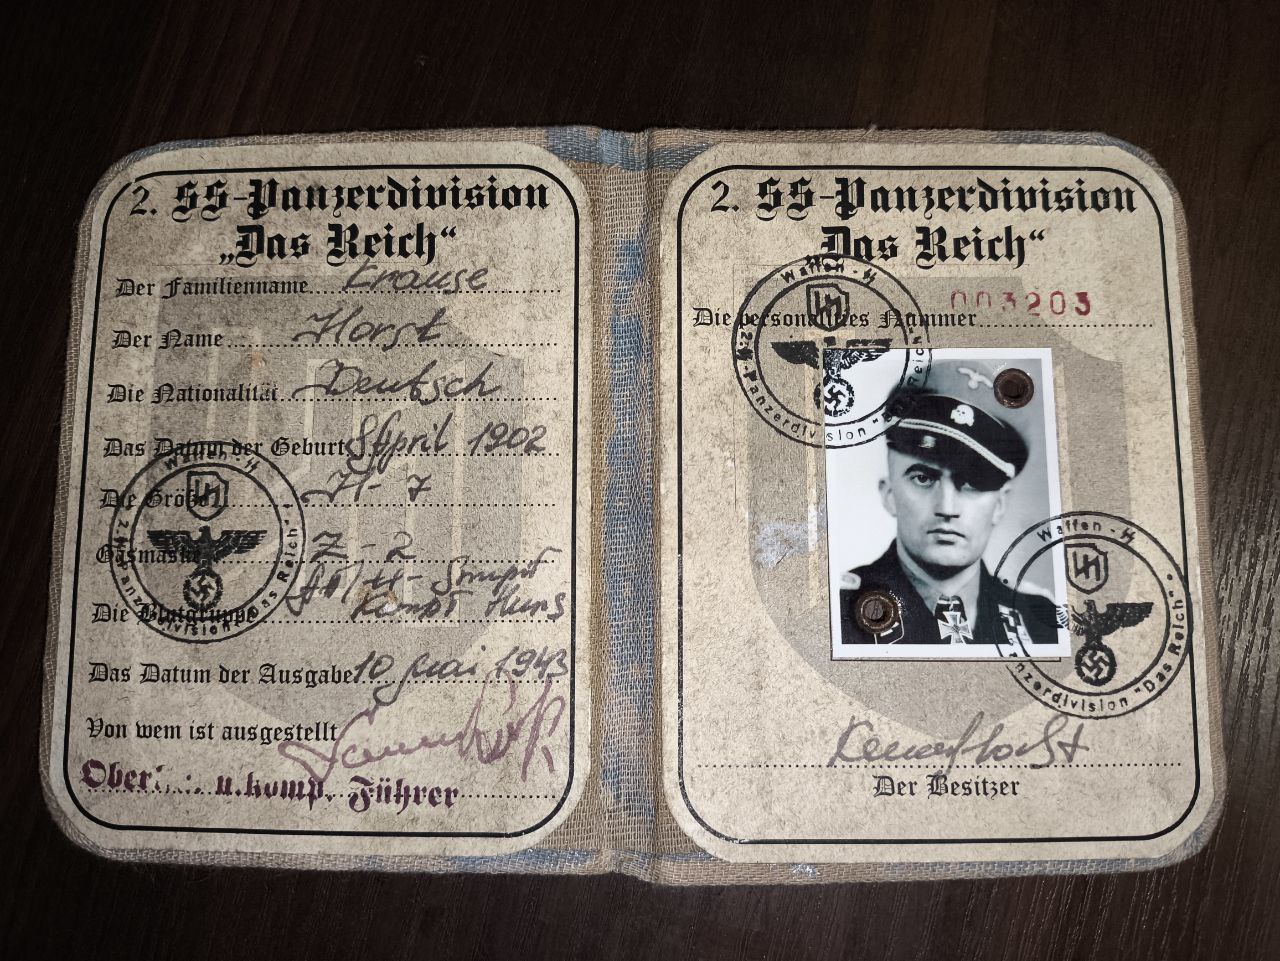 2. SS-Panzerdivision
„Das Reich“
Der Familienname Krause
Der Name Horst
Die Nationalität Deutsch
Das Datum der Geburt 8 April 1902
Die Größe
Gasmaske Z-2
Die Blutgruppe
Das Datum der Ausgabe 10 1943
Von wem ist ausgestellt
u. komp. Führer
Waffen-SS
2. SS-Panzerdivision "Das Reich"
2. SS-Panzerdivision
„Das Reich“
Die personalities Nummer 003203
Waffen-SS
2. SS-Panzerdivision "Das Reich"
Waffen-SS
Panzerdivision "Das Reich"
Der Besitzer